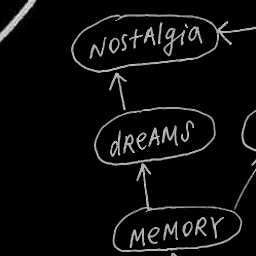 NOSTAlgiA
dREAMS
MEMORY